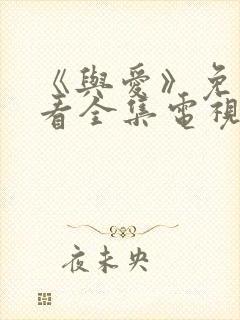 《與愛》免
看全集電視
夜未央